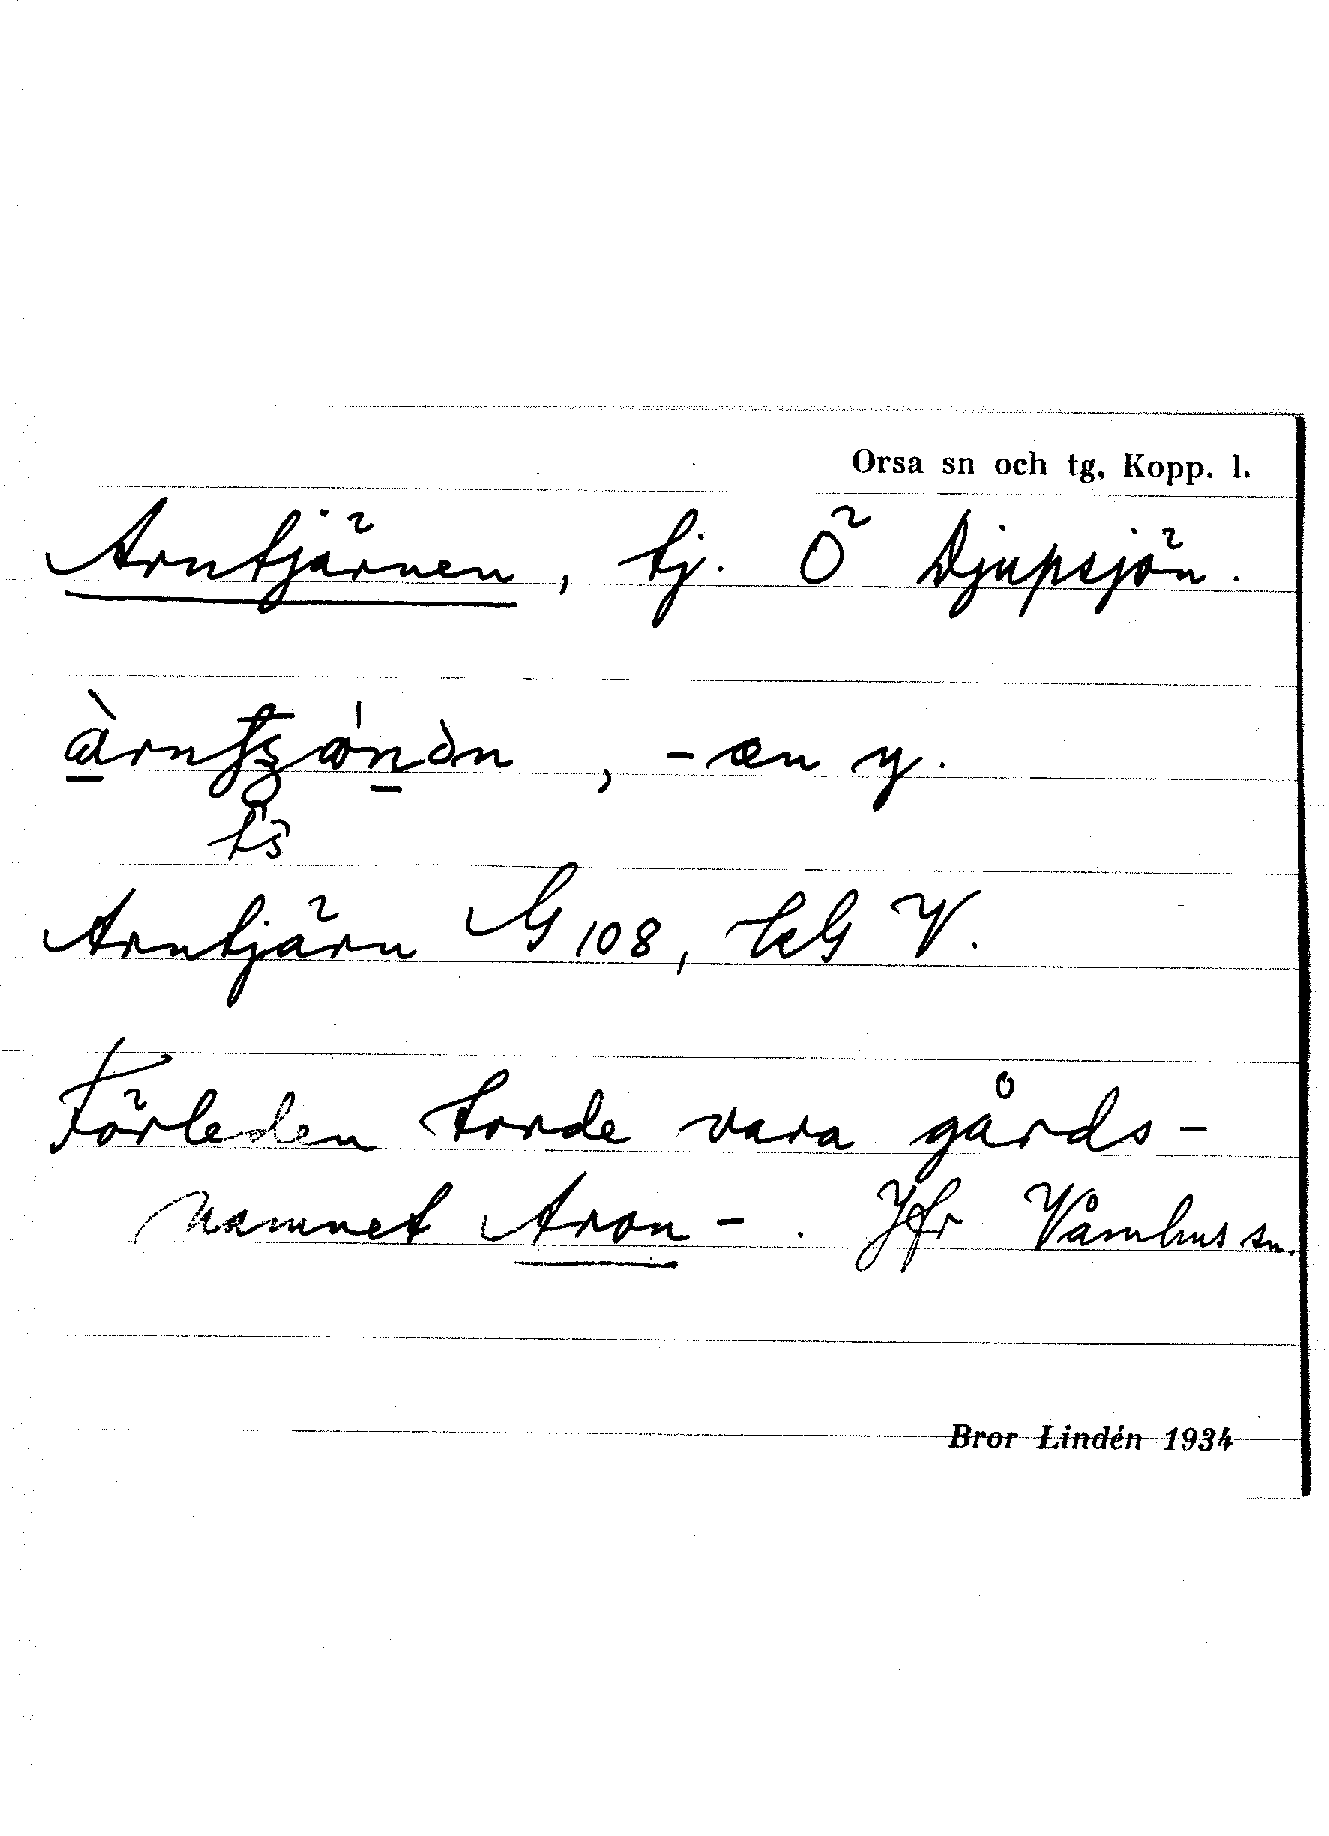 Orsa sn och tg, Kopp. l.
Arntjärnen, tj. Ö Djupsjön.
, -æn y.
Arntjärn G 108, LG V.
Förleden torde vara gårds-
namnet Aron-. Jfr Våmhus sn.
Bror Lindén 1934